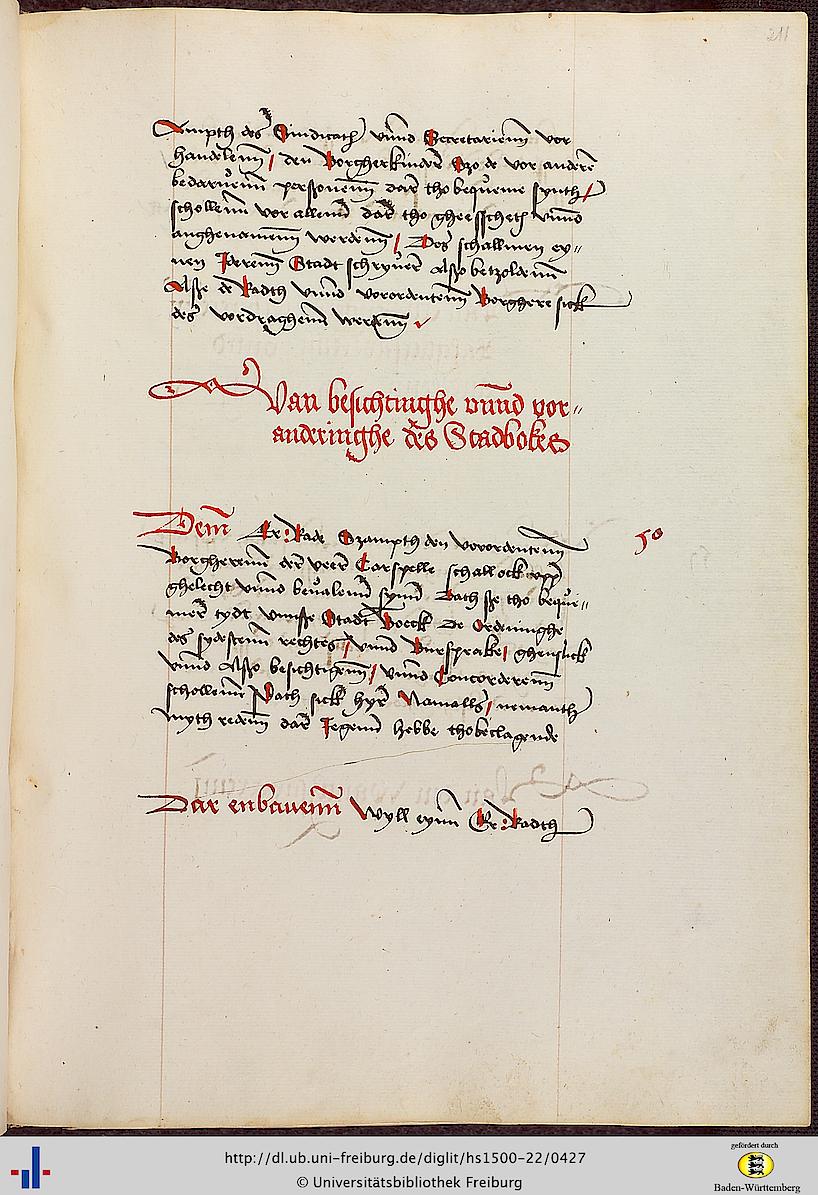 211
Ampth des Sindicath vnnd Secretarienn vor
handelenn / den Borgherkinderen Szo de vor anderen
bedaruenn personenn dar tho bequeme synth /
schollenn vor allenn dar tho gheesscheth vnnd
anghenamenn werdenn / Des schallmen ey-
nen Iderenn Stadt schryuer Alßo betzoldenn
Alße de Radth vnnd vorordentenn Borghere sick
des vordraghenn werdenn
Van besichtinghe vnnd vor-
anderinghe des Stadbokes
Dem Er: Rade Szampth den vorordentenn
50
Borgherenn der veer Carspelle schall ock vpp
ghelecht vnnd beualenn synn Dath ße tho beque-
mer tydt vnnße Stadt Boeck De Ordeninghe
des sydestenn rechtes / vnnd Bursprake / ghenslick
vnnd Alßo besichtigenn / vnnd Concorderenn
schollenn Dath sick hyr Namalls / nemanth
myth redenn dar Iegenn hebbe tho beclagende
Dar enbauenn Wyll eynn Er: Radth
http://dl.ub.uni-freiburg.de/diglit/hs1500-22/0427
© Universitätsbibliothek Freiburg
gefördert durch
Baden-Württemberg